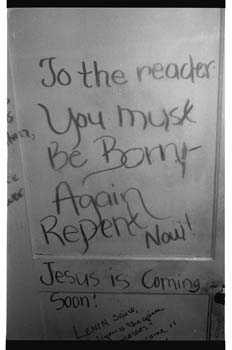 To the reader:
You must
Be Born
Again
Repent Now!
Jesus is Coming
Soon!
LENIN said,